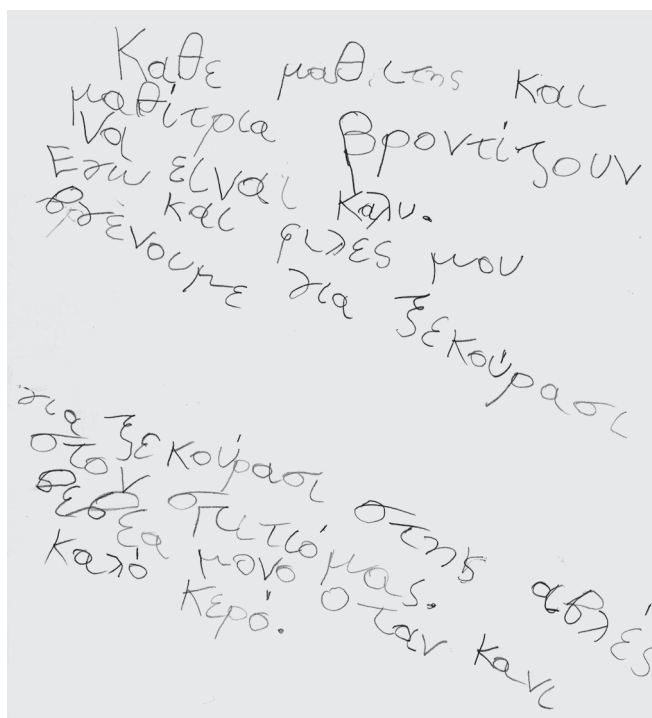 Καθε μαθιτης και
μαθίτρια βροντίζουν
να είναι καλυ.
Εγω και φιλες μου
βγένουμε για ξεκούρασι
για ξεκούρασι στης αβλές
στον σπιτιόμας.
μονο οταν κανι
καλό κερό.